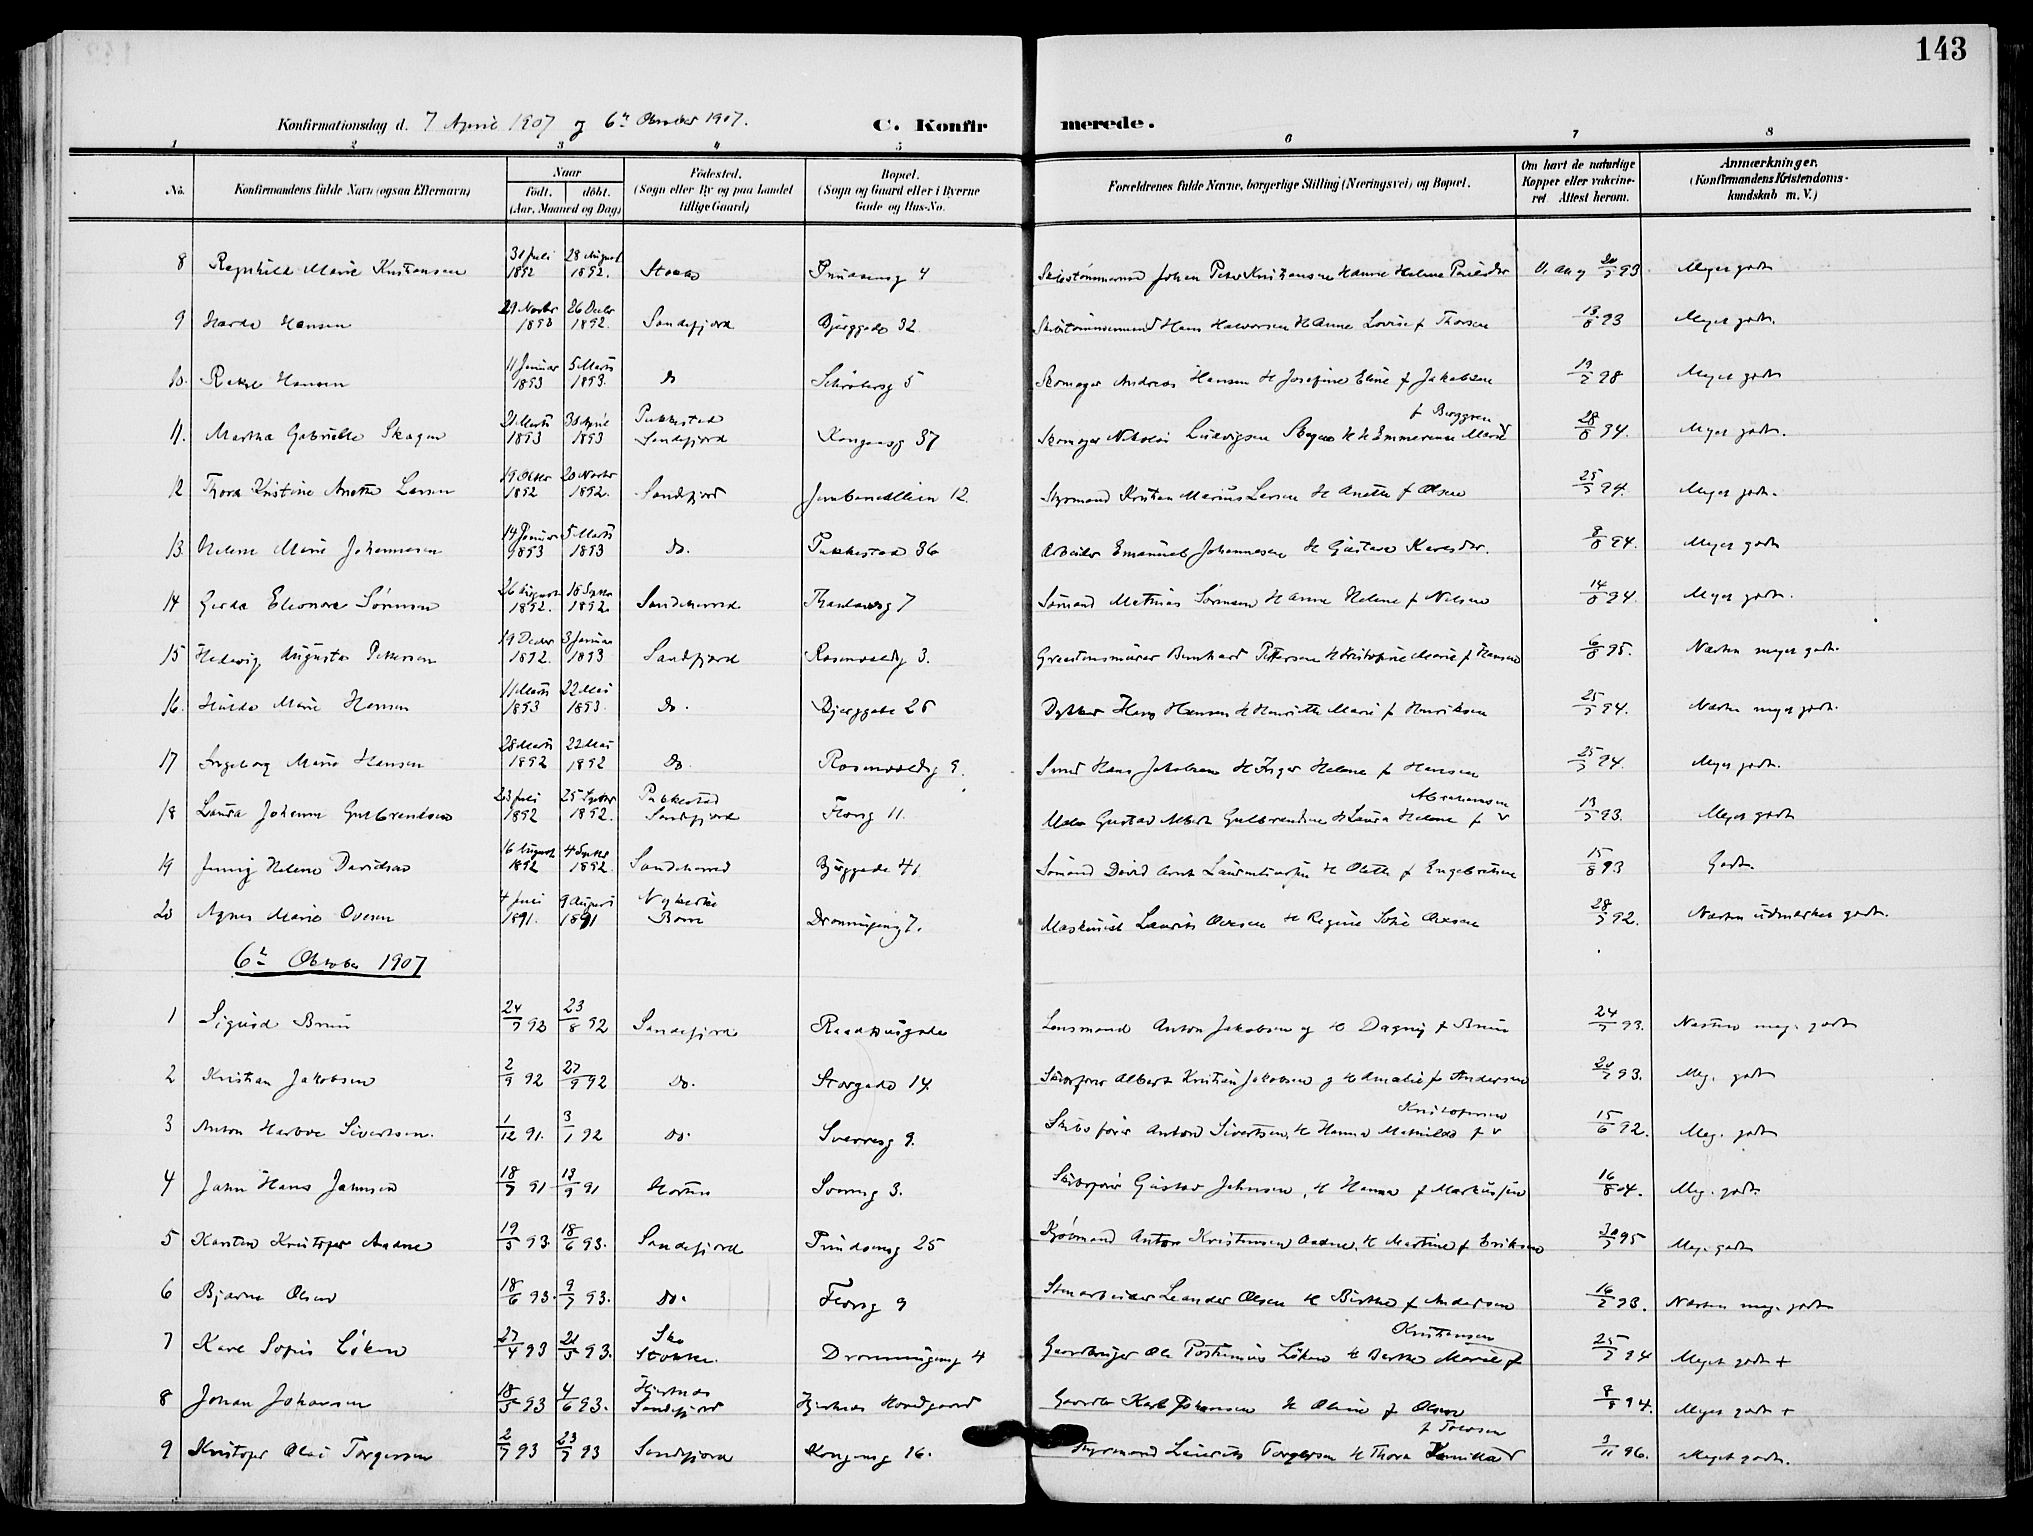 143
Konfirmationsdag d. 7 April 1907 og 6te Oktober 1907. C. Konfirmerede.
1 2 3 4 5 6 7 8
No. Konfirmandens fulde Navn (ogsaa Efternavn) Naar født. døbt. (Aar, Maaned og Dag) Fødested. (Sogn eller By og paa Landet tillige Gaard) Bopæl. (Sogn og Gaard eller i Byerne Gade og Hus-No. Forældrenes fulde Navne, borgerlige Stilling (Næringsvei) og Bopæl. Om havt de naturlige Kopper eller vaccineret. Attest herom. Anmærkninger. (Konfirmandens Kristendomskundskab m. V.)
8 Ragnhild Marie Kristiansen 31 Juli 1892 28 August 1892. Prindsensg 4 Skibstømmermand Johan Peter Kristiansen Hanne Helene 20/7 93 Meget godt
9 Hansen 29 Novbr 26 Decbr 1892. Sandefjord Bjerggade 32 Skibstømmermand Hans Halvorsen H Anne Lovise f Thorsen 13/8 93 Meget godt.
10. Hansen 11 Januar 1893 5 Marts 1893. do Schrøtersg 5 Skomager Andreas Hansen H Josefine Eline f Jakobsen 98 Meget godt
11. Martha Gabrielle Skagen 21 Marts 1893 30 April 1893 Pukkestad Sandefjord Kongensg 37 Skomager Nikolai Ludvigsen Skagen H Emmerense Marie f Berggren 28/8 94. Meget godt.
12 Thora Kristine Anette Larsen 19 Oktbr 1892 20 Novbr 1892. Sandefjord Jernbanealleen 12. Styrmand Kristian Marius Larsen H Anette f Olsen 25/7 94. Meget godt.
13. Helene Marie Johannesen 14 Januar 1893 5 Marts 1893 Do. Pukkestad 36 Arbeider Emanuel Johannesen H Gustava Karesdtr. 8/8 94. Meget godt
14 Gerda Eleonora Sørensen 26 August 1892. 18 Septbr 1892 Sandeherred Thaulowsg 7 Sømand Mathias Sørensen H Anne Helene f Nilsen 14/8 94. Meget godt.
15 Hedevig Augusta Pettersen 19 Decbr 1892. 3 Januar 1893 Sandefjord Rosenvoldg 3. Bernhard Pettersen H Kristofine Marie f Hansen 6/8 95. Næsten meget godt.
16. Hulda Marie Hansen 11 Marts 1893 22 Mai 1893. Do. Bjerggade 25 Dykker Hans Hansen H Henriette Marie f Henriksen 25/7 94. Næsten meget godt.
17 Ingeborg Marie Hansen 28 Marts 1892 22 Mai 1892 Do. Rosenvoldg 9. Smed Hans Jakobsen H Inger Helene f Hansen 25/7 94. Meget godt.
18 Laura Johanne Gulbrandsen 23 Juli 1892 25 Septbr 1892. Pukkestad Sandefjord Florsg 11. Maler Gustav Albert Gulbrandsen H Laura Helene f Abrahamsen 13/7 93. Meget godt
19 Jenny Helene Davidsen 16 August 1892 4 Septbr 1892. Sandeherred Bjerggade 41 Sømand David Arnt H Olette f Engebretsen 15/8 93 Godt.
20 Agnes Marie Ovesen 4 Juni 1891. 9 August 1891 Nykirke Borre Dronningensg 7. Maskinist Laurits Ovesen H Regine Sofie Ovesen 28/7 92. Næsten udmærket godt.
6te Oktober 1907
1 Sigurd Bruu 24/7 92 23/8 92 Sandefjord Raadhusgade Lensmand Anton Jakobsen og H Dagny f Bruu 24/7 93. Næsten meg. godt
2 Kristian Jakobsen 2/9 92 27/9 92 Do. Storgade 14. Skibsfører Albert Kristian Jakobsen og H Amalie f Andersen 93. Meg. godt
3 Anton Harboe Sivertsen. 1/12 91. 3/1 92 Do. Sverresg 9. Skibsfører Anton Sivertsen, H Hanna Mathilda f Kristofersen 15/6 92. Meg. godt
4 John Hans Johnsen 18/7 91 13/9 91 Horten 3. Skibsfører Gustav Johnsen, H Hanna f Markussen 16/8 04. Meg. godt.
5 Karsten Kristofer Aadne 19/5 93. 18/6 93. Sandefjord Prindsensg 25 Kjøbmand Anton Kristensen Aadne, H Martine f Eriksen 30/7 95 Meg. godt
6 Bjarne Olsen 18/6 93. 9/7 93. Do. Florsg 9 Stenarbeider Leander Olsen H Birthe f Andersen 16/7 93. Næsten meg. godt
7 Kare Sofus Løken 27/4 93 21/5 93. Sko Stokke. Dronningensg 4 Gaardbruger Ole Løken H Berthe Marie f Kristiansen 25/7 94 Meget godt +
8 Johan Johansen 18/5 93 4/6 93. Hjertnes Sandefjord Hjertnes Hovedgaard Karl Johansen H Oline f Olsen 8/8 94. Meget godt +
9 Kristofer Olai Torgersen 2/7 93 23/7 93 Sandefjord Kongensg 16. Styrmand Laurits Torgersen H Thora f 3/11 96. Meget godt.